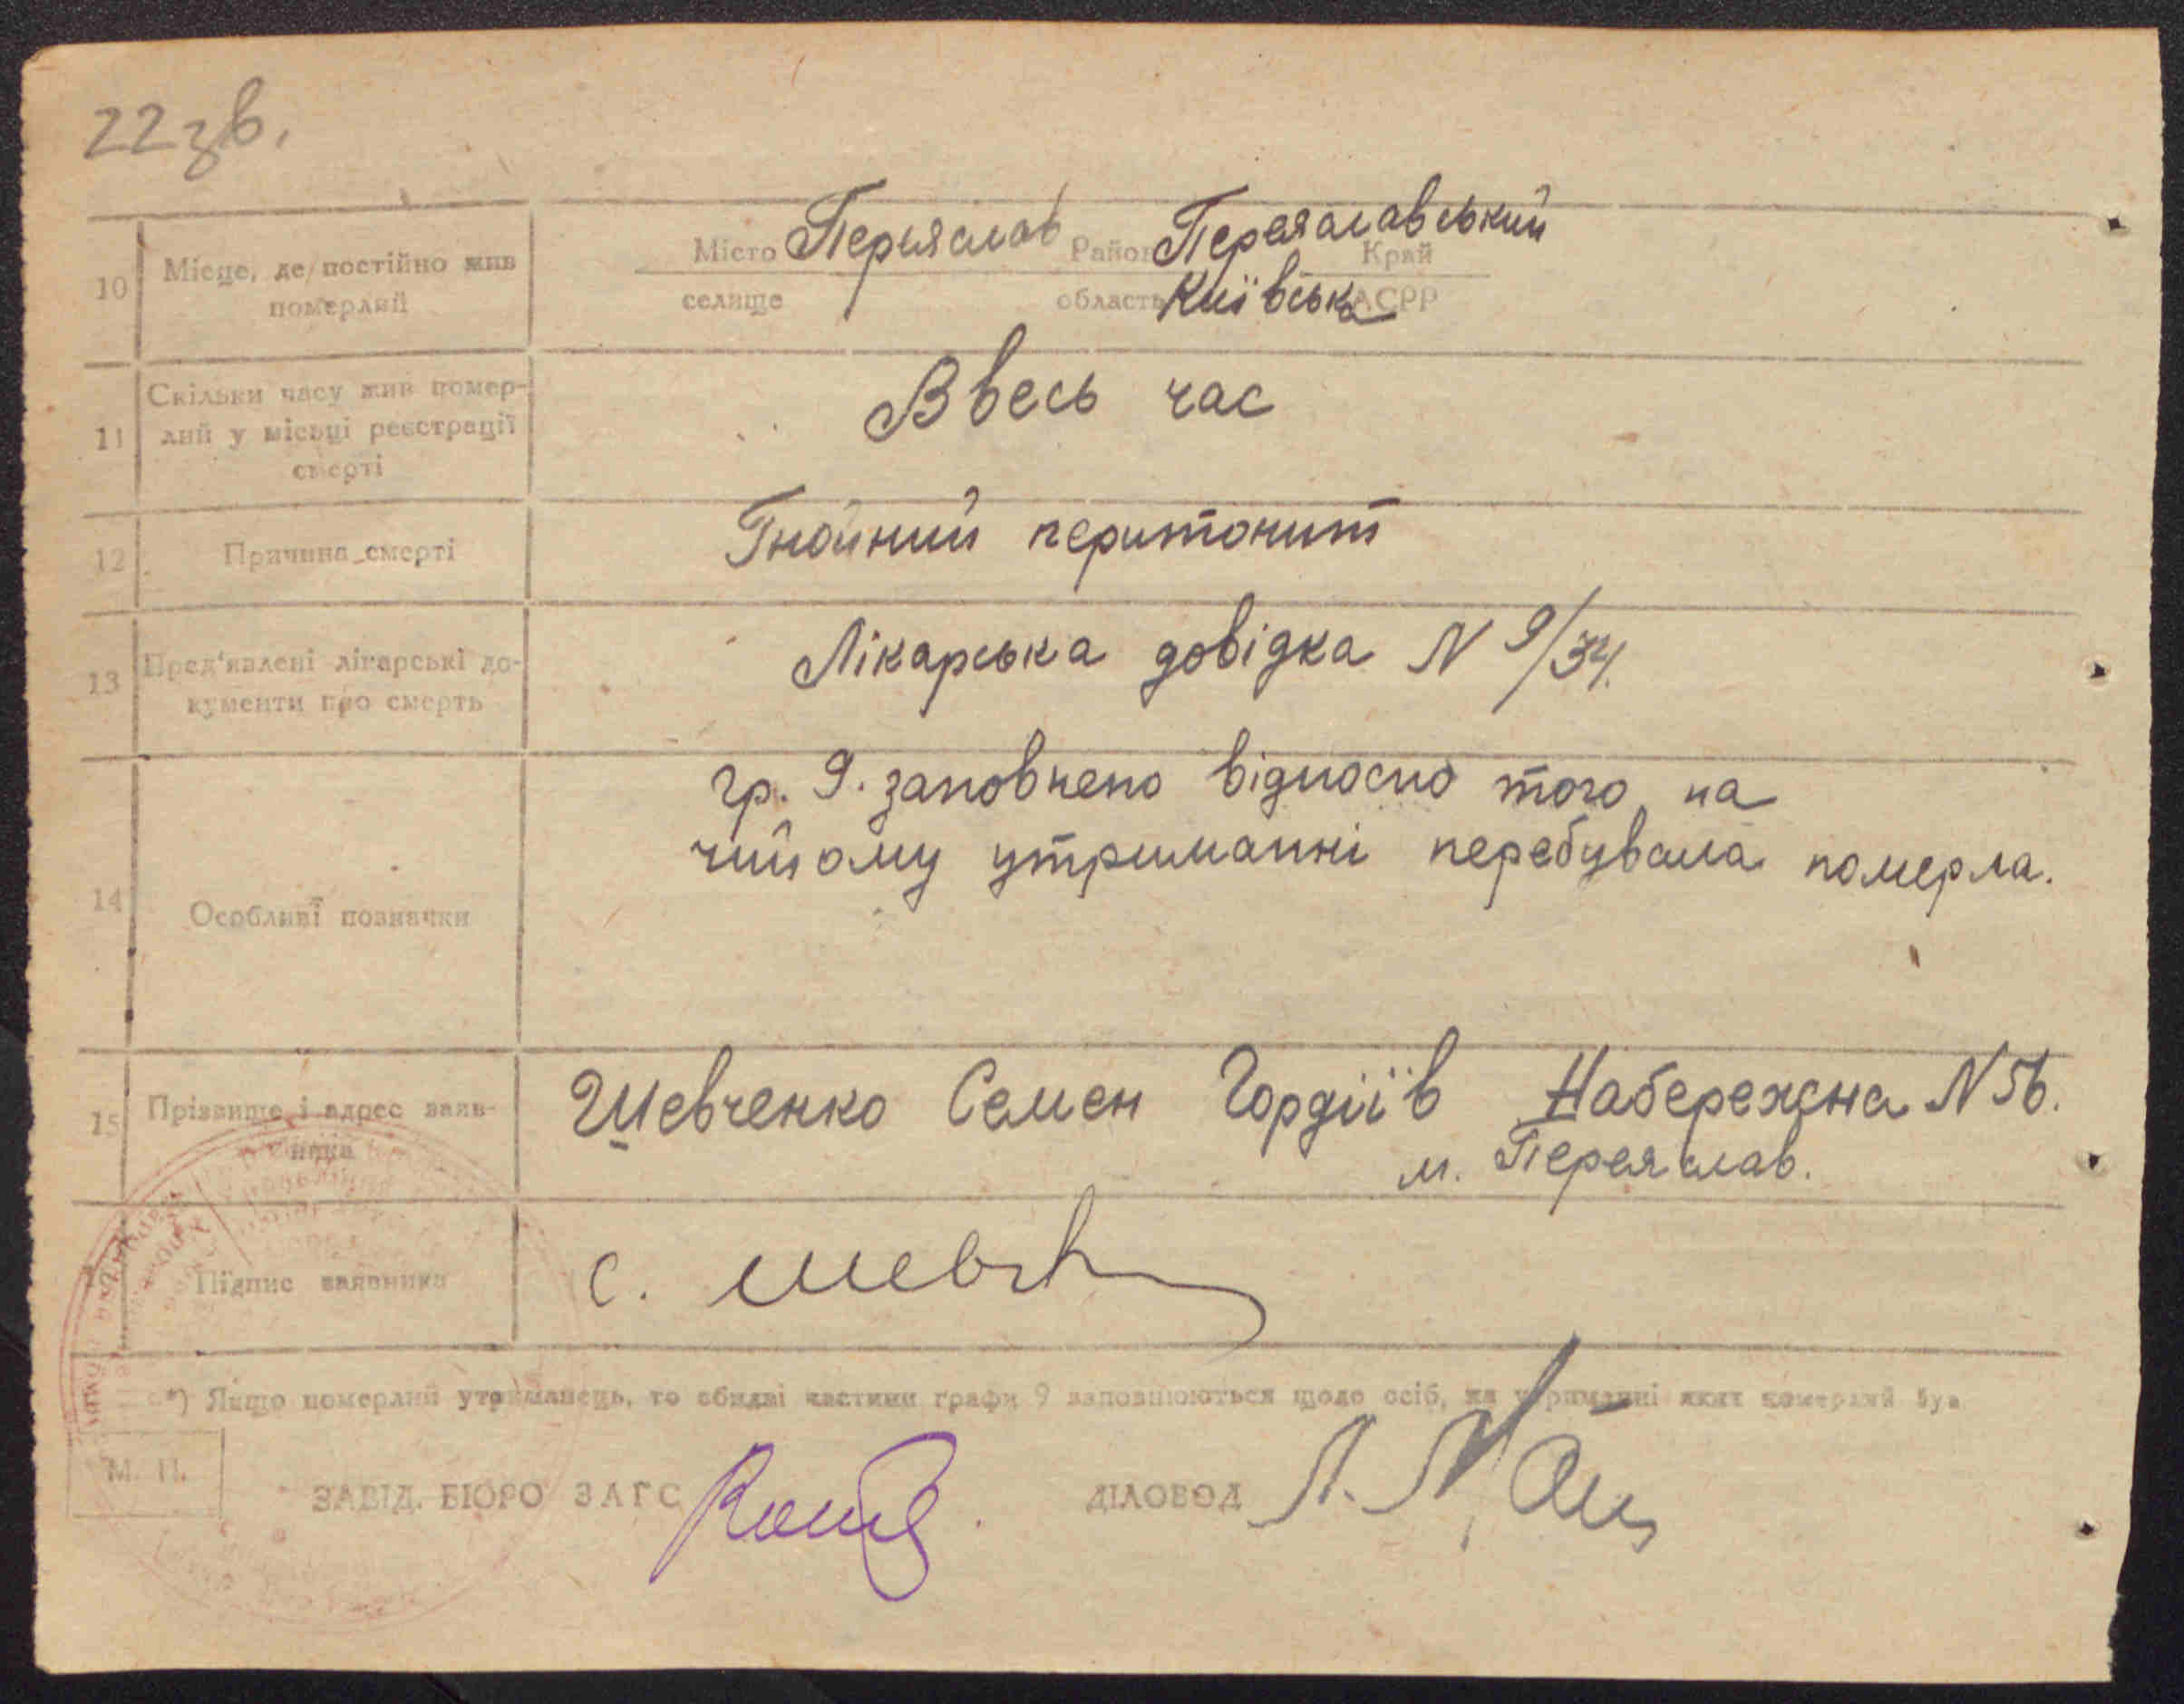 22зв.
10 Місце, де постійно жив померлий
Місто Переяслав Район Переяславський Край
селище область Київська АСРР
11 Скільки часу жив помер-
лий у місьці реєстрації
смерті
Ввесь час
12 Причина смерті Гнойний перитонит
13 Пред'явлені лікарські до-
кументи про смерть
Лікарська довідка N 9/34.
14 Особливі позначки
гр. 9. заповнено відносно того на
чийому утриманні перебувала померла.
15 Прізвище і адрес заяв-
ника
Шевченко Семен Гордіїв Набережна N 56.
м. Переяслав.
Підпис заявника С. Шевч
*) Якщо померлий утриманець, то обидві частини графи 9 заповнюються щодо осіб, на утриманні яких померлий був
М. П.
ЗАВІД. БЮРО ЗАГС ДІЛОВОД